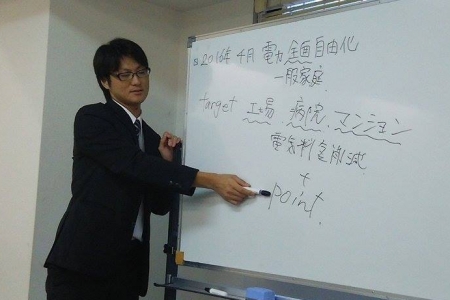 ②2016年4月 電力 全面自由化
一般家庭
target 工場 病院、マンション
電気料金削減
+
point